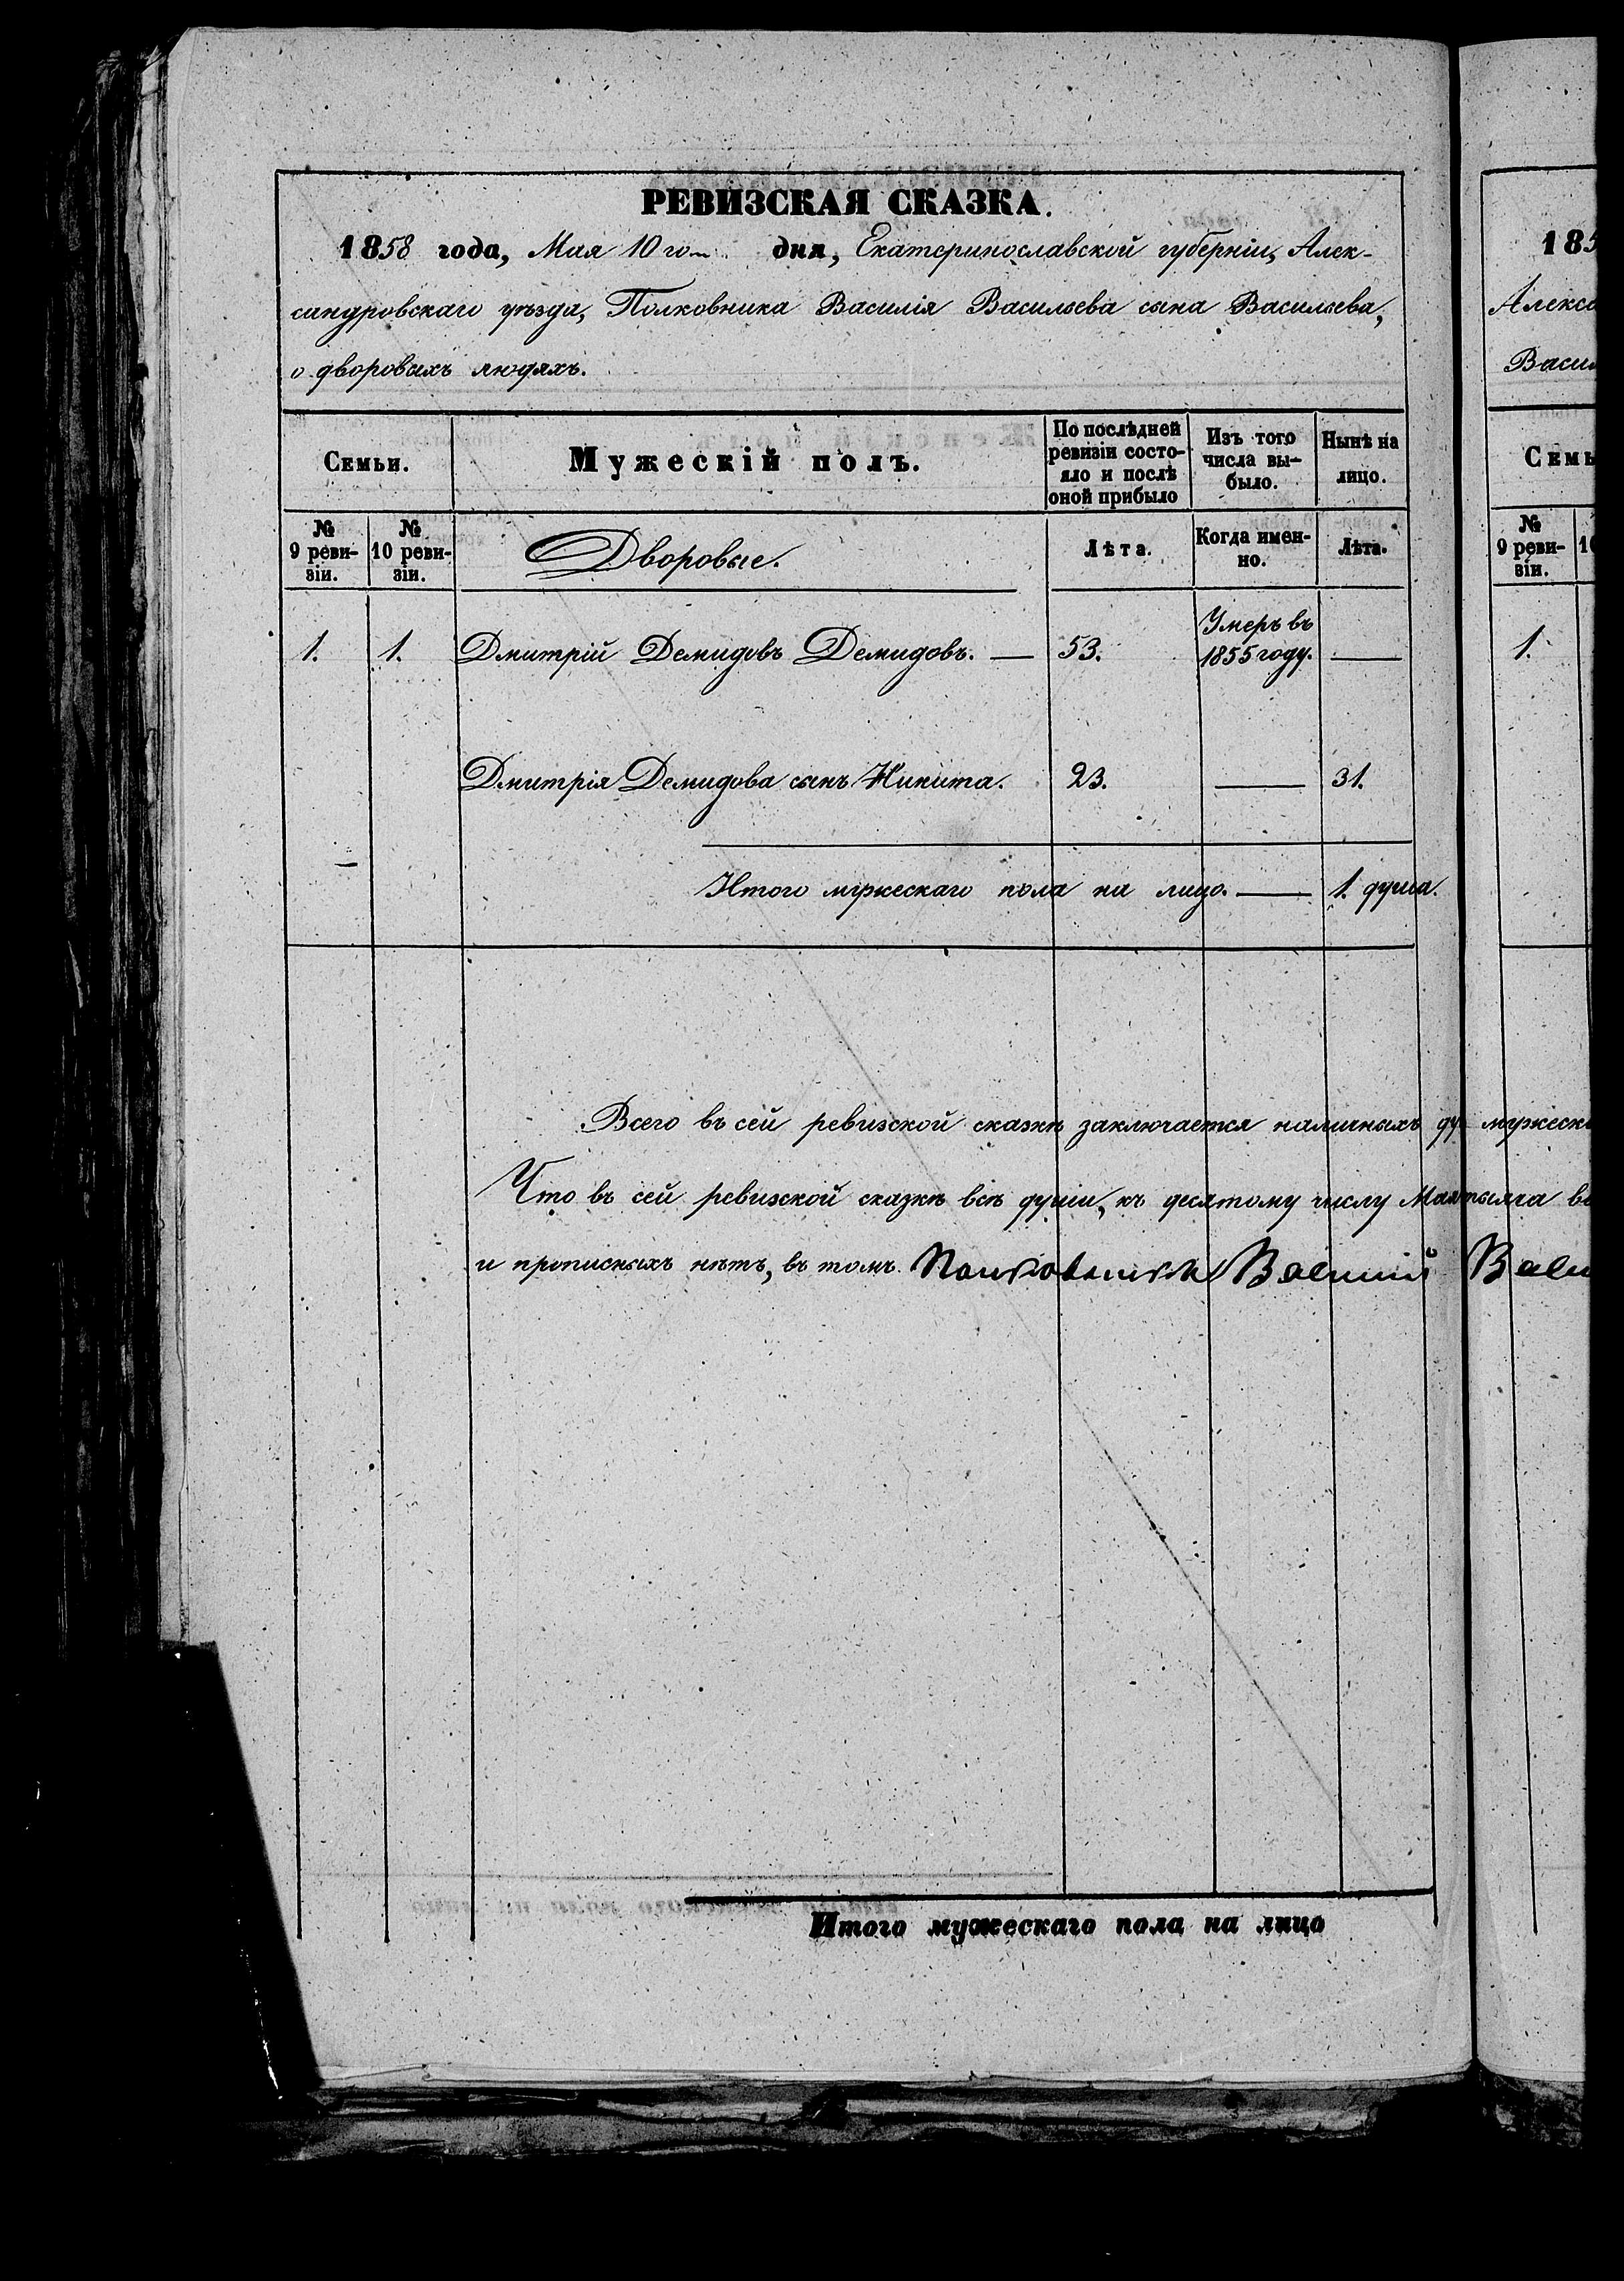 РЕВИЗСКАЯ СКАЗКА.
1858 года, Мая 10 го дня, Екатеринославской губерніи, Алек-
сандровскаго уѣзда, Полковника Василія Васильева сына Васильева,
о дворовыхъ людяхъ.
Семьи. Мужескій полъ. По послѣдней ревизіи состо-яло и послѣ оной прибыло Изъ того числа вы-было. Нынѣ на лицо.
№ 9 реви-зіи. № 10 реви-зіи. Дворовые. Лѣта. Когда имен-но. Лѣта.
1. 1. Дмитрій Демидовъ Демидовъ. — 53. Умеръ въ 1855 году. —
Дмитрія Демидова сынъ Никита. 23. — 31.
Итого мужескаго пола на лицо. — 1. душа.
Всего въ сей ревизской сказкѣ заключается наличныхъ ду мужеск
Что въ сей ревизской сказкѣ всѣ души, къ десятому числу Мая
и прописныхъ нѣтъ, въ томъ Полковникъ Василий Васи
Итого мужескаго пола на лицо
185
Алекса
Васил
Семь
№ 9 реви-зіи. 10
1.